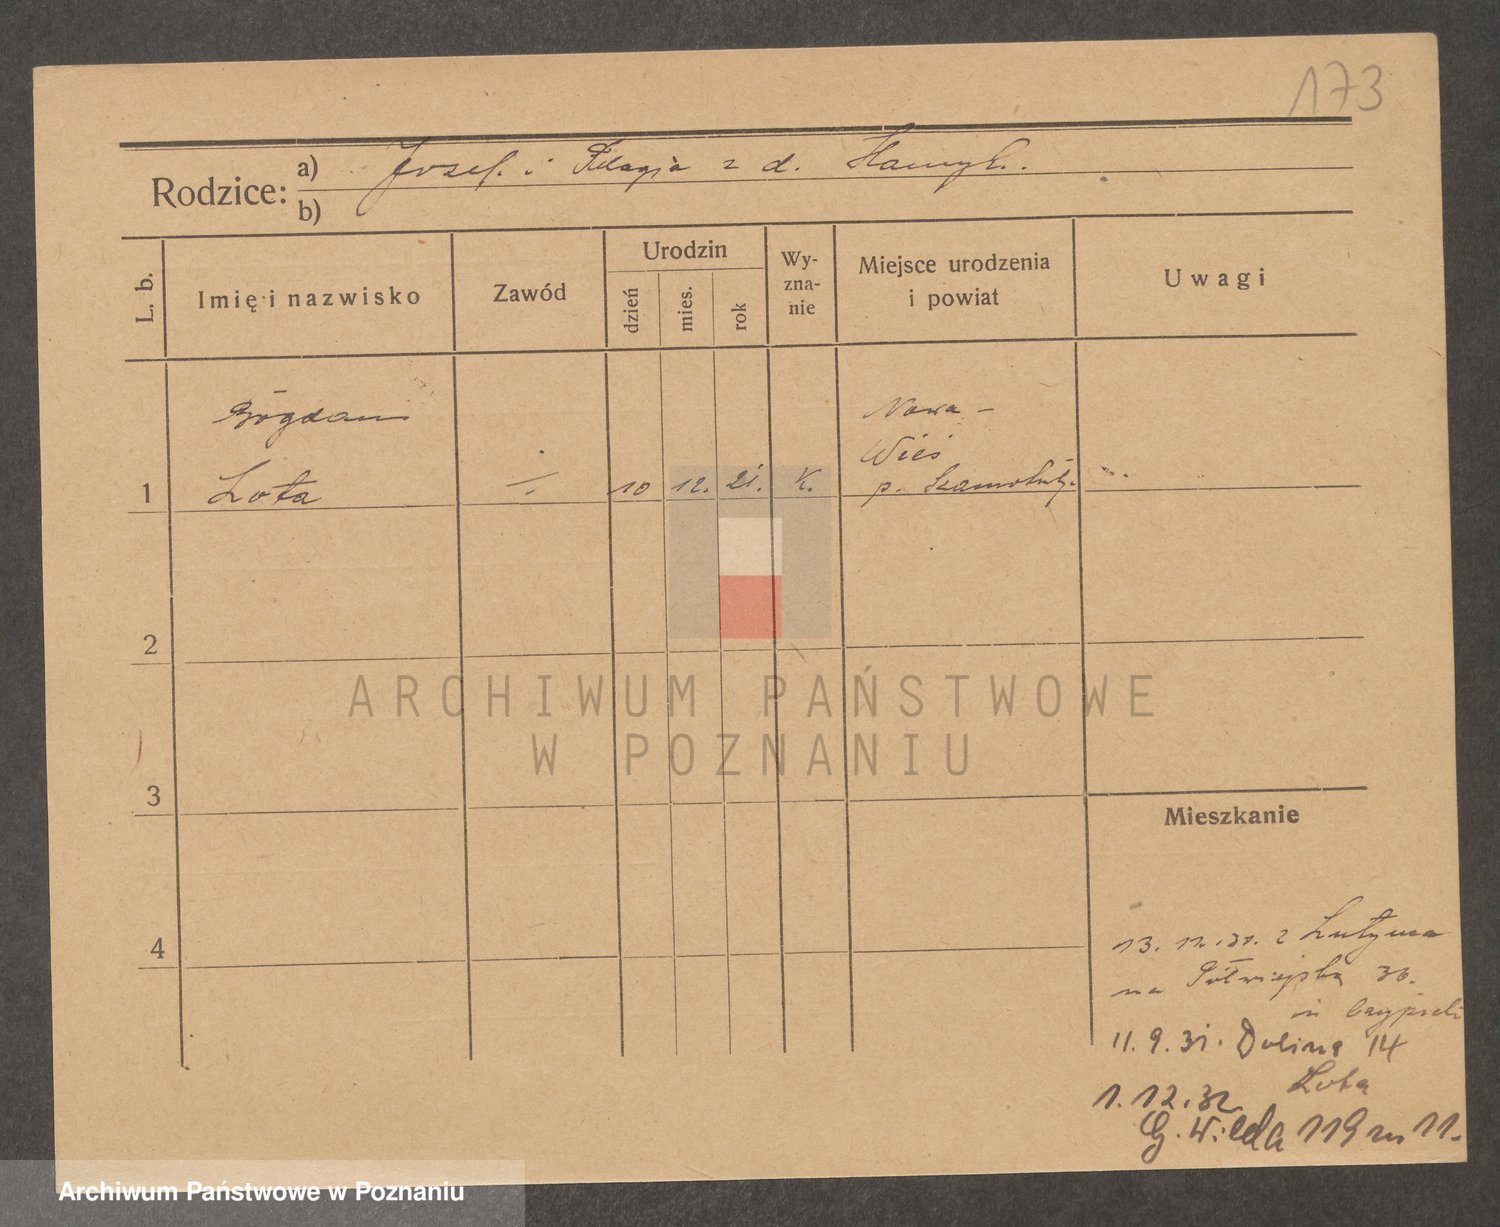 173
Rodzice: a) Jozef i Pelagja z d. Hamyk.
b)
L. b. Imię i nazwisko Zawód Urodzin dzień mies. rok Wy-zna-nie Miejsce urodzenia i powiat Uwagi
Bogdan Nowa -
Wieś
1 Lota 10 12. 21. k. p. Szamotuły
2
ARCHIWUM PAŃSTWOWE
W POZNANIU
3
Mieszkanie
4
13. 12. 30. z Lutynia
na Półwiejska 36.
11. 9. 31. Dolina 14
Lota
1. 12. 32
G. Wilda 119 m 11.
Archiwum Państwowe w Poznaniu